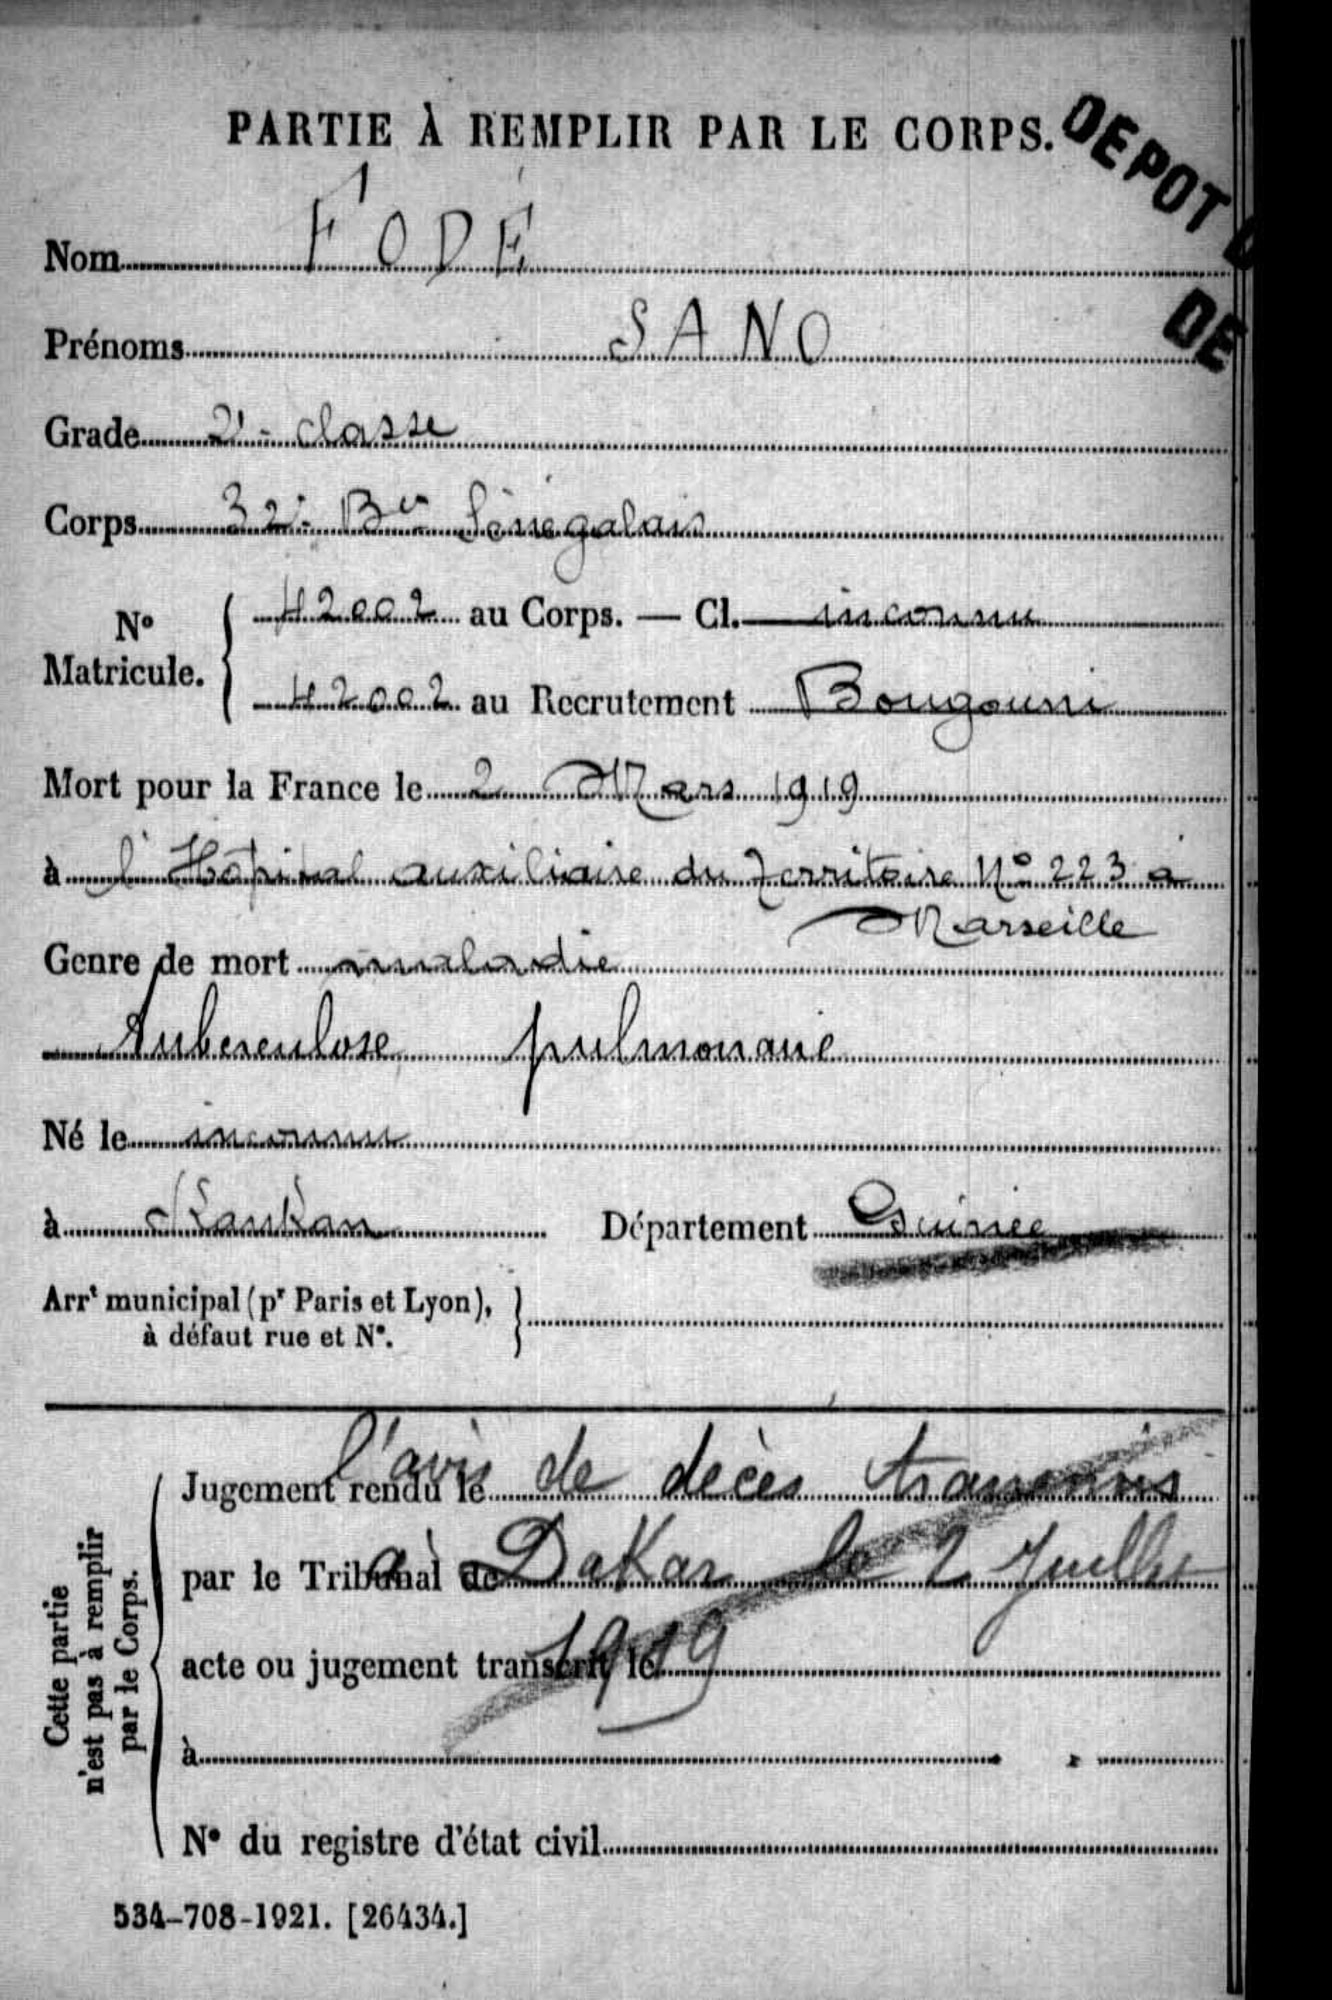 PARTIE À REMPLIR PAR LE CORPS.
DEPOT
DE
Nom FODÉ
Prénoms SANO
Grade 2e classe
Corps 32e Bon Sénégalais
No Matricule. 42002 au Corps. — Cl. inconnu
42002 au Recrutement Bougouni
Mort pour la France le 2 Mars 1919
à l'Hôpital auxiliaire du Territoire No 223 à
Marseille
Genre de mort maladie
Tuberculose pulmonaire
Né le inconnu
à Kankan Département Guinée
Arrt municipal (pr Paris et Lyon),
à défaut rue et No.
Cette partie
n'est pas à remplir
par le Corps.
l'avis de décès transmis
Jugement rendu le
à Dakar le 2 Juillet
par le Tribunal de
1919
acte ou jugement transcrit le
à
No du registre d'état civil
534-708-1921. [26434.]